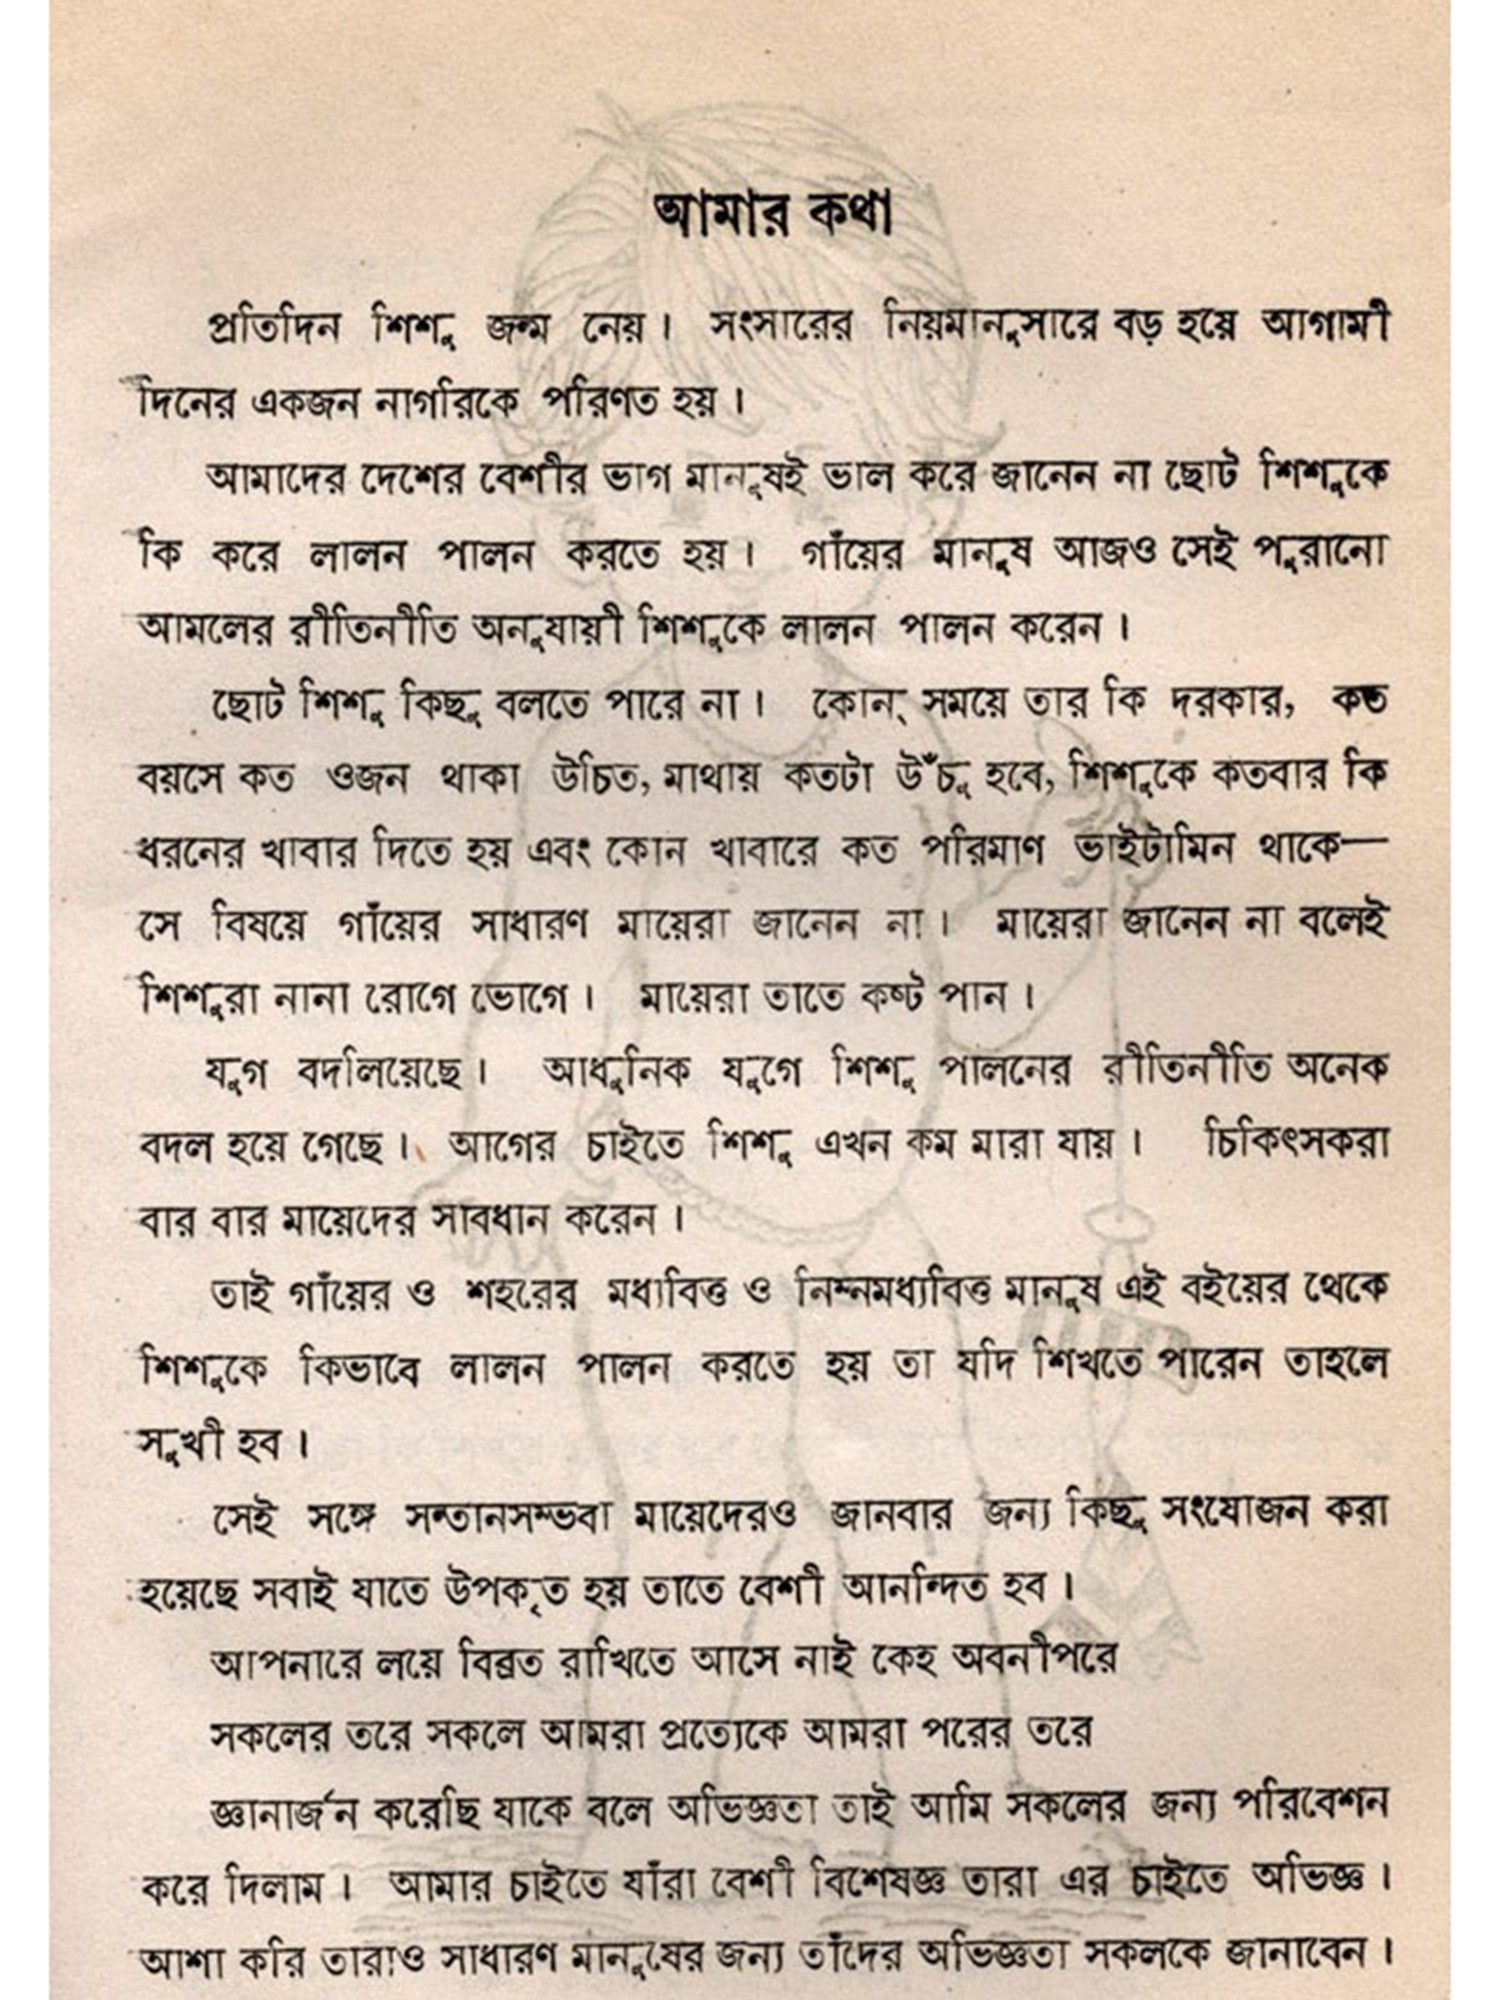 আমার কথা
প্রতিদিন শিশু জন্ম নেয়। সংসারের নিয়মানুসারে বড় হয়ে আগামী
দিনের একজন নাগরিকে পরিণত হয়।
আমাদের দেশের বেশীর ভাগ মানুষই ভাল করে জানেন না ছোট শিশুকে
কি করে লালন পালন করতে হয়। গাঁয়ের মানুষ আজও সেই পুরানো
আমলের রীতিনীতি অনুযায়ী শিশুকে লালন পালন করেন।
ছোট শিশু কিছু বলতে পারে না। কোন্ সময়ে তার কি দরকার, কত
বয়সে কত ওজন থাকা উচিত, মাথায় কতটা উঁচু হবে, শিশুকে কতবার কি
ধরনের খাবার দিতে হয় এবং কোন খাবারে কত পরিমাণ ভাইটামিন থাকে—
সে বিষয়ে গাঁয়ের সাধারণ মায়েরা জানেন না। মায়েরা জানেন না বলেই
শিশুরা নানা রোগে ভোগে। মায়েরা তাতে কষ্ট পান।
যুগ বদলিয়েছে। আধুনিক যুগে শিশু পালনের রীতিনীতি অনেক
বদল হয়ে গেছে। আগের চাইতে শিশু এখন কম মারা যায়। চিকিৎসকরা
বার বার মায়েদের সাবধান করেন।
তাই গাঁয়ের ও শহরের মধ্যবিত্ত ও নিম্নমধ্যবিত্ত মানুষ এই বইয়ের থেকে
শিশুকে কিভাবে লালন পালন করতে হয় তা যদি শিখতে পারেন তাহলে
সুখী হব।
সেই সঙ্গে সন্তানসম্ভবা মায়েদেরও জানবার জন্য কিছু সংযোজন করা
হয়েছে সবাই যাতে উপকৃত হয় তাতে বেশী আনন্দিত হব।
আপনারে লয়ে বিব্রত রাখিতে আসে নাই কেহ অবনীপরে
সকলের তরে সকলে আমরা প্রত্যেকে আমরা পরের তরে
জ্ঞানার্জন করেছি যাকে বলে অভিজ্ঞতা তাই আমি সকলের জন্য পরিবেশন
করে দিলাম। আমার চাইতে যাঁরা বেশী বিশেষজ্ঞ তারা এর চাইতে অভিজ্ঞ।
আশা করি তারাও সাধারণ মানুষের জন্য তাঁদের অভিজ্ঞতা সকলকে জানাবেন।